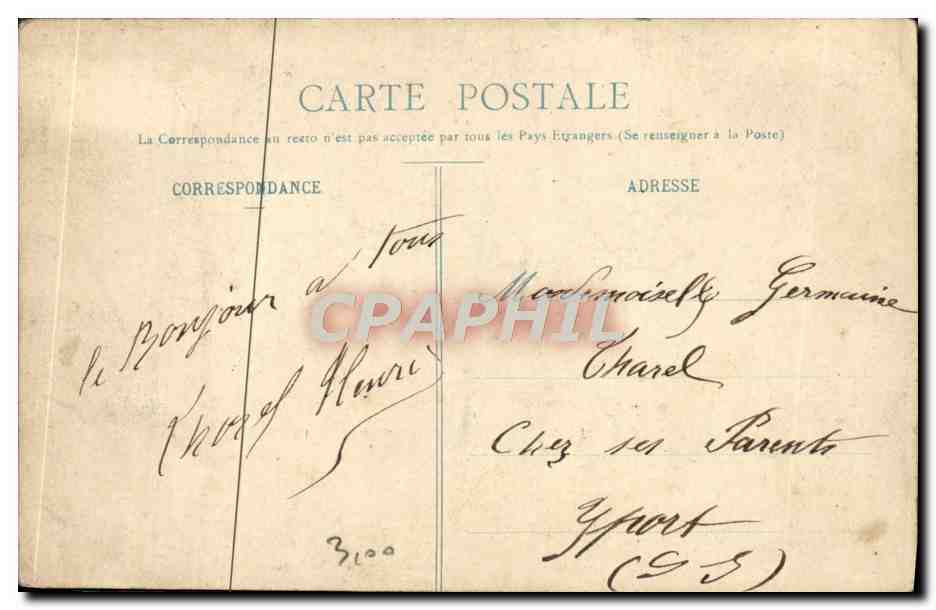 CARTE POSTALE
La Correspondance au recto n'est pas acceptée par tous les Pays Etrangers (Se renseigner à la Poste)
CORRESPONDANCE
le Bonjour a tous
Thorel Henri
3,00
ADRESSE
Mademoiselle Germaine
Tharel
Chez ses Parents
Yport
(S I)
CPAPHIL